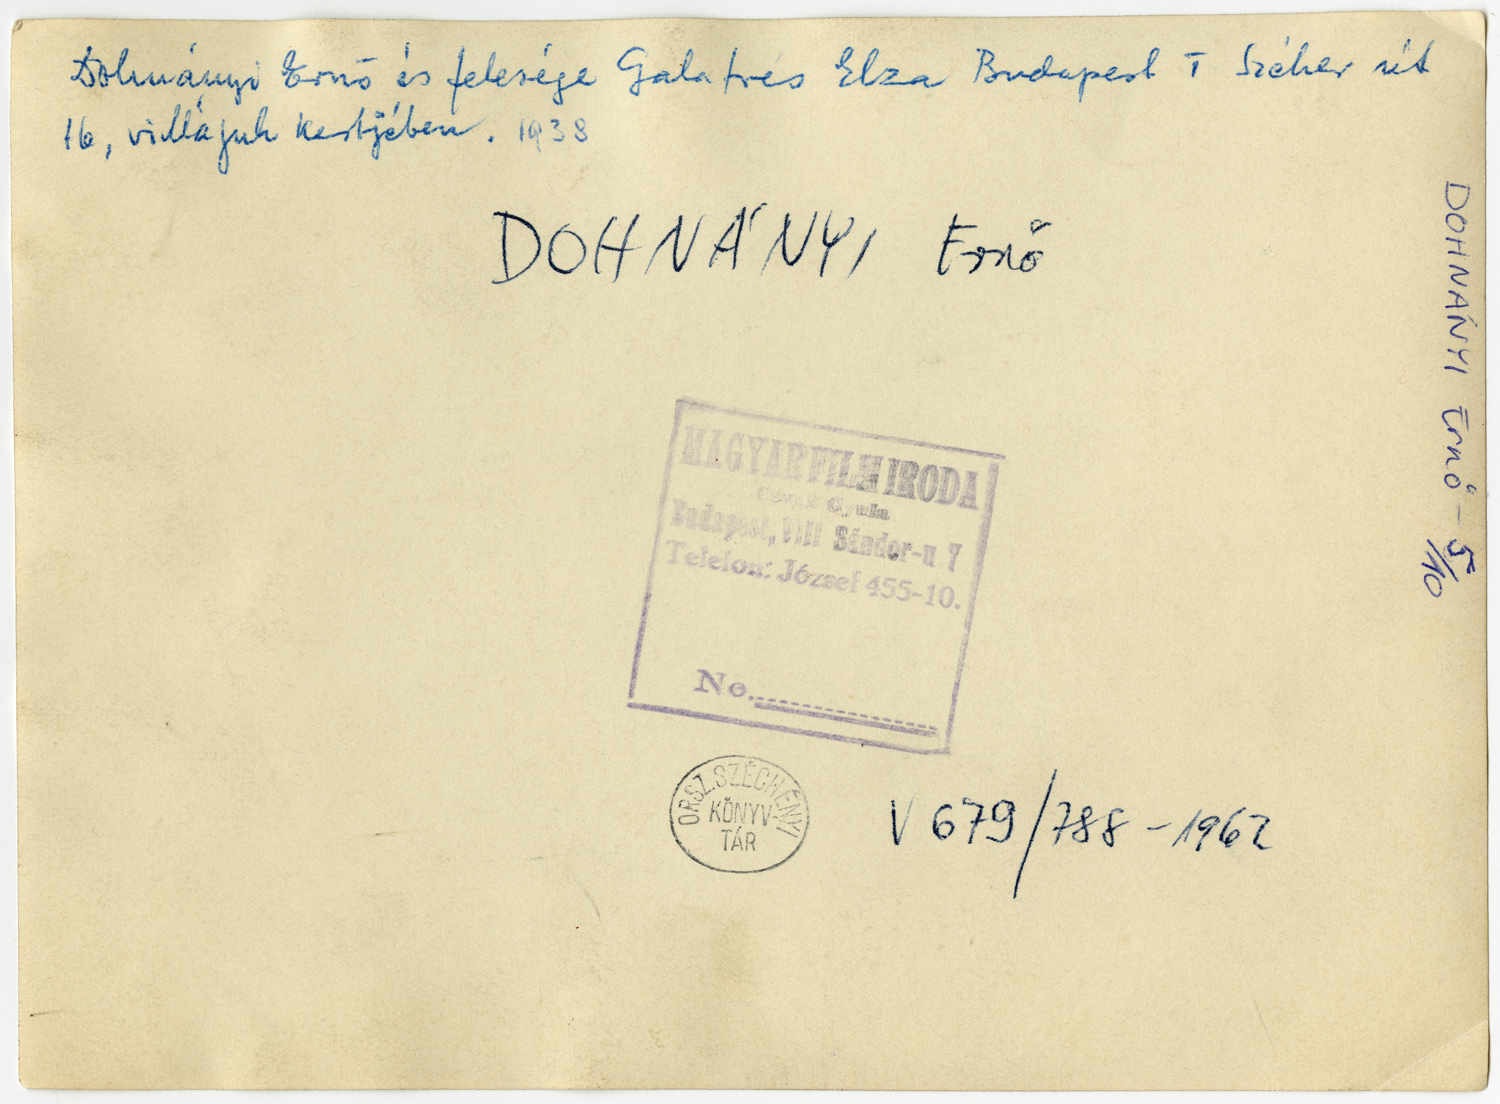 Dohnányi Ernő és felesége Galafrés Elza Budapest I Széher út
16, villájuk kertjében. 1938
DOHNÁNYI Ernő
DOHNÁNYI Ernő - 5/10
MAGYAR FILM IRODA
Gyula
Budapest, VIII Sándor-u 7
Telefon: József 455-10.
No.
ORSZ. SZÉCHÉNYI
KÖNYV-
TÁR
V 679/788 - 1962